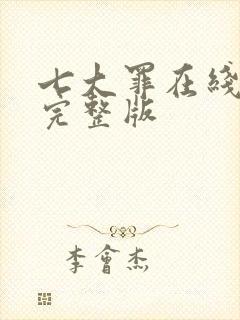 七大罪在綫
完整版
李會杰